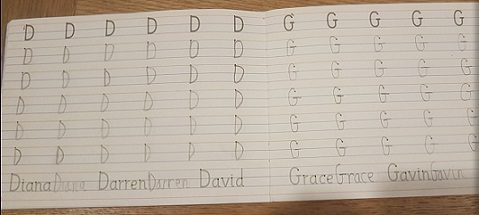 D D D D D D
D D D D D D
D D D D D D
D D D D D D
D D D D D D
D D D D D D
Diana Diana Darren Darren David
G G G G G
G G G G G
G G G G G
G G G G G
G G G G G
G G G G G
Grace Grace Gavin Gavin